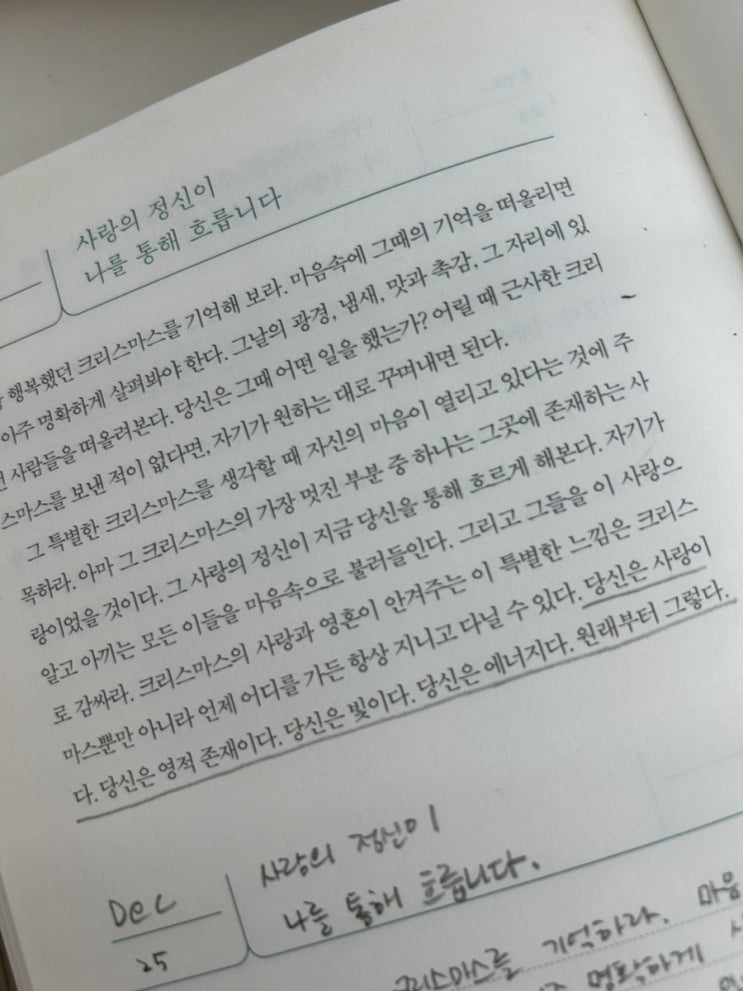 사랑의 정신이
나를 통해 흐릅니다
행복했던 크리스마스를 기억해 보라. 마음속에 그때의 기억을 떠올리면
아주 명확하게 살펴봐야 한다. 그날의 광경, 냄새, 맛과 촉감, 그 자리에 있
사람들을 떠올려본다. 당신은 그때 어떤 일을 했는가? 어릴 때 근사한 크리
스마스를 보낸 적이 없다면, 자기가 원하는 대로 꾸며내면 된다.
그 특별한 크리스마스를 생각할 때 자신의 마음이 열리고 있다는 것에 주
목하라. 아마 그 크리스마스의 가장 멋진 부분 중 하나는 그곳에 존재하는 사
랑이었을 것이다. 그 사랑의 정신이 지금 당신을 통해 흐르게 해본다. 자기가
알고 아끼는 모든 이들을 마음속으로 불러들인다. 그리고 그들을 이 사랑으
로 감싸라. 크리스마스의 사랑과 영혼이 안겨주는 이 특별한 느낌은 크리스
마스뿐만 아니라 언제 어디를 가든 항상 지니고 다닐 수 있다. 당신은 사랑이
다. 당신은 영적 존재이다. 당신은 빛이다. 당신은 에너지다. 원래부터 그렇다.
Dec
25
사랑의 정신이
나를 통해 흐릅니다.
크리스마스를 기억하라. 마음
명확하게